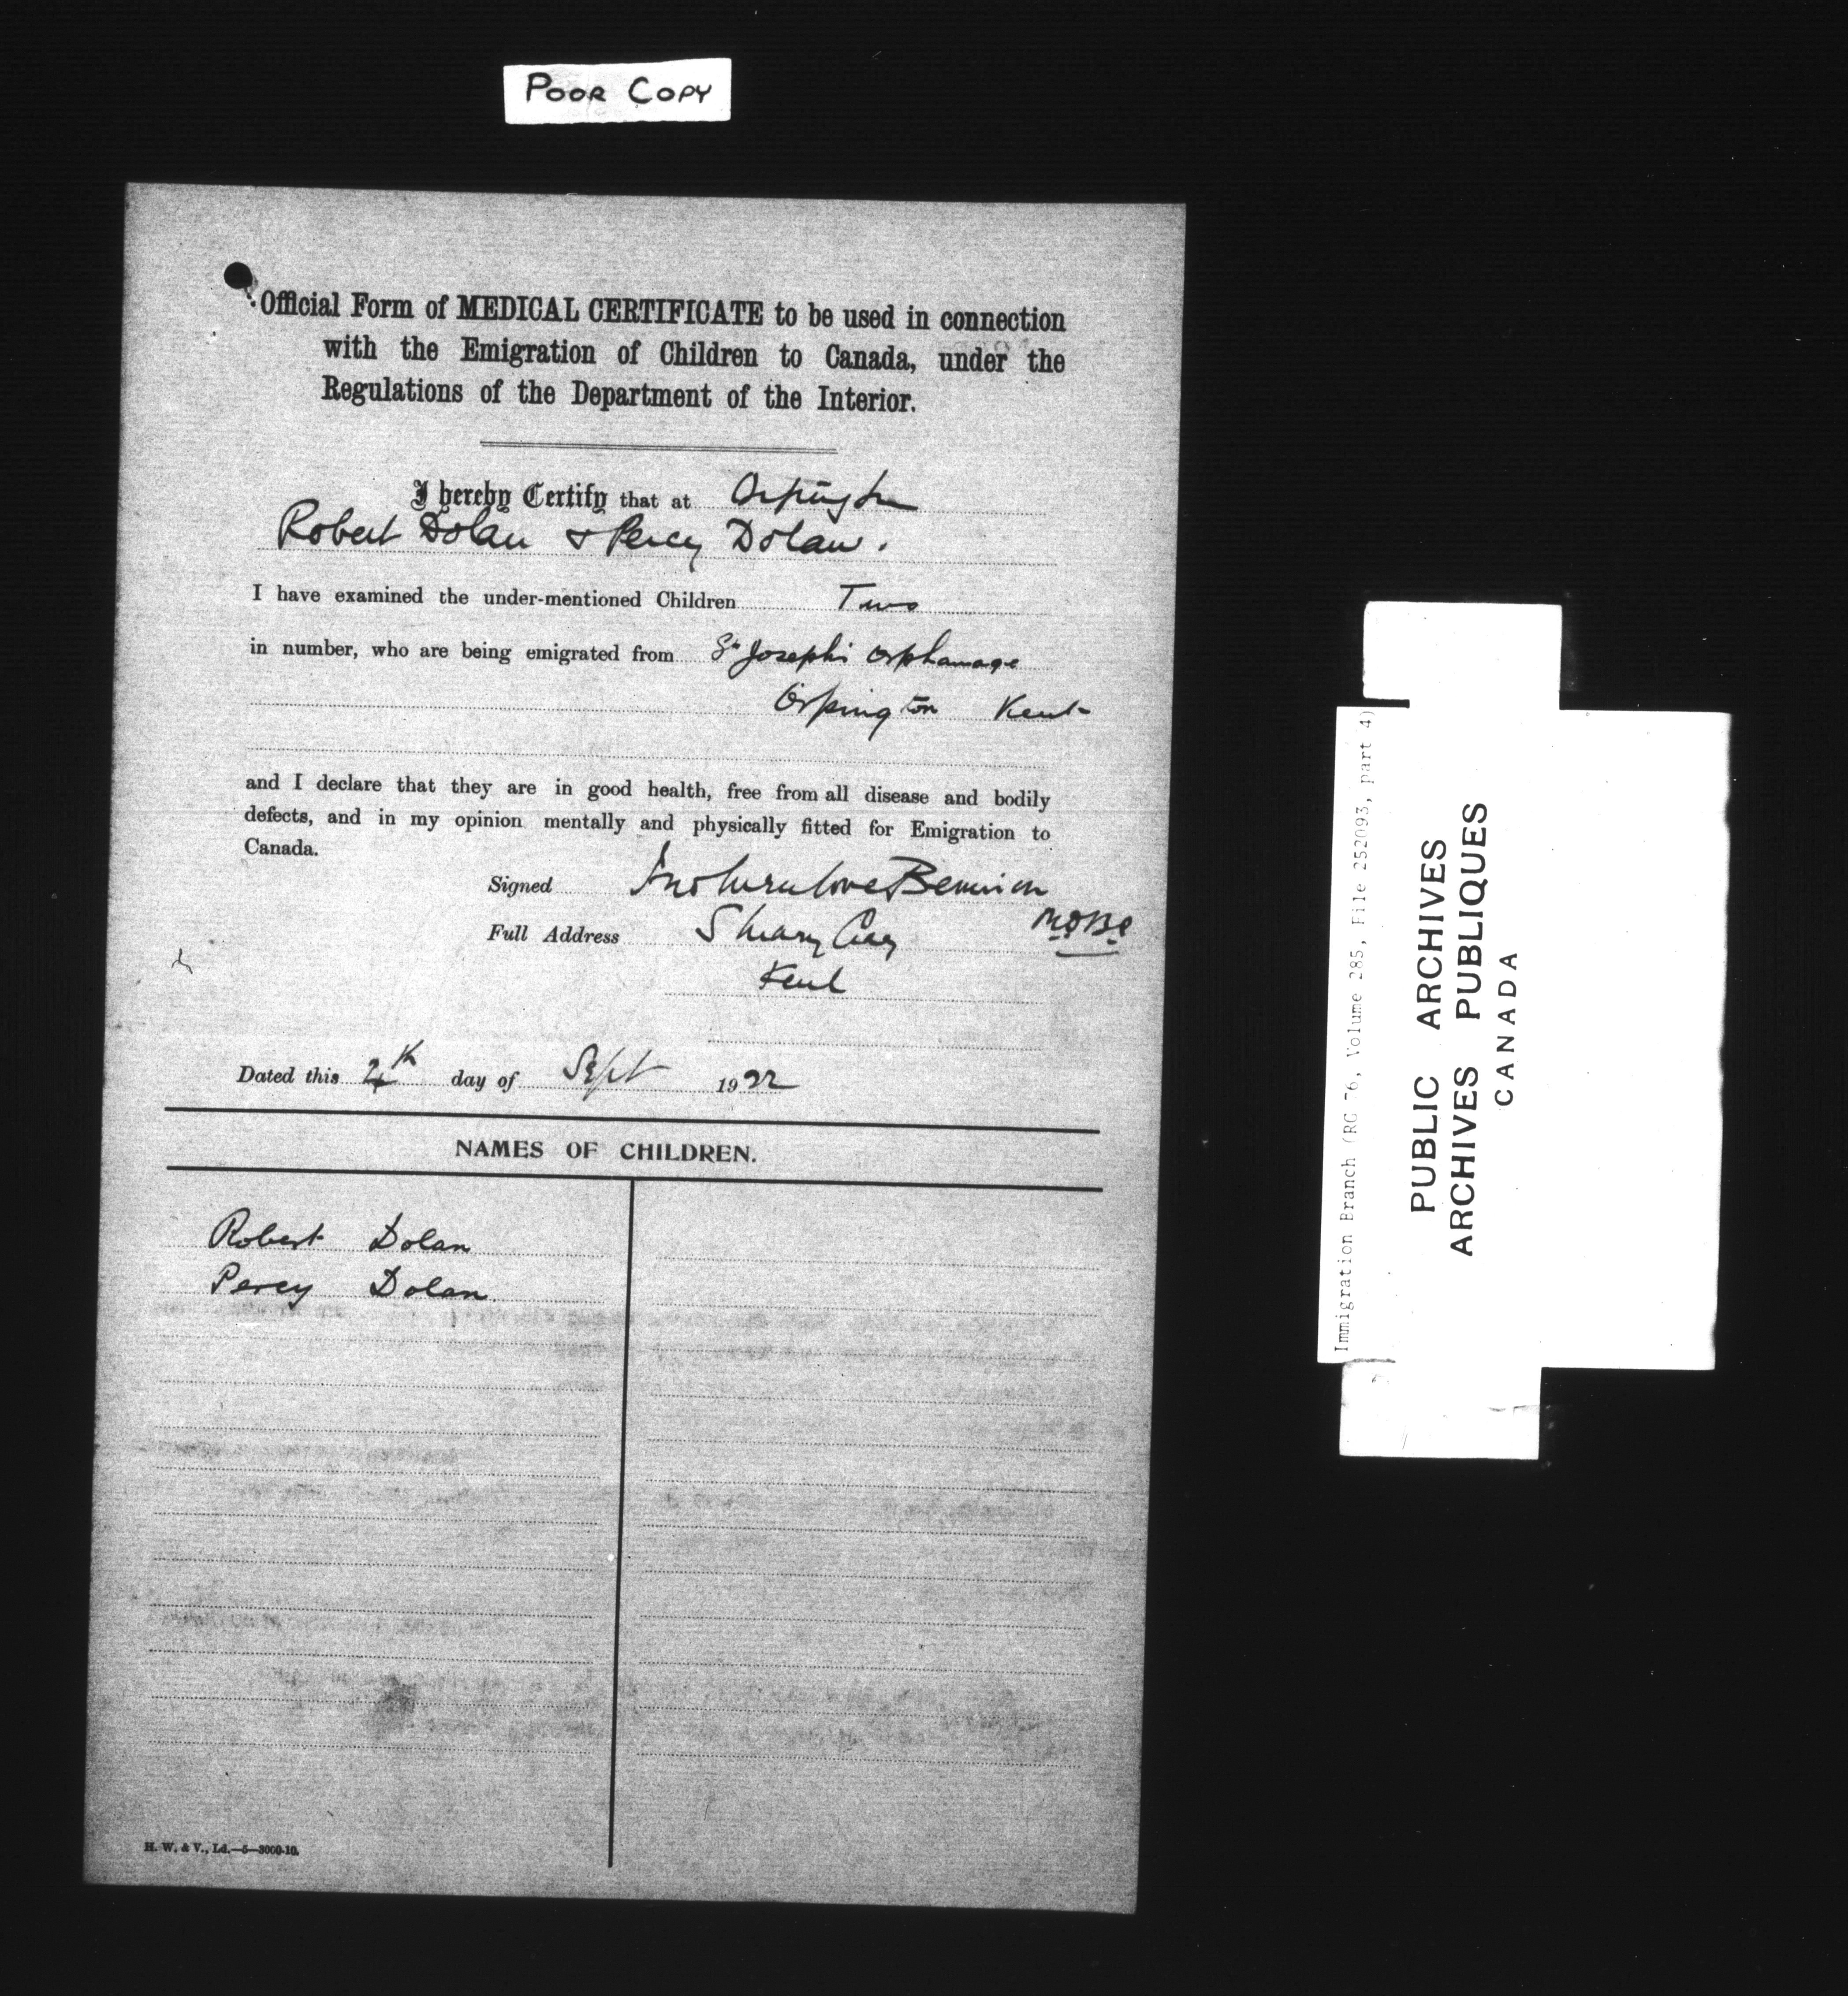 POOR COPY
Official Form of MEDICAL CERTIFICATE to be used in connection
with the Emigration of Children to Canada, under the
Regulations of the Department of the Interior.
I hereby Certify that at Orpington
Robert Dolan & Percy Dolan.
I have examined the under-mentioned Children Two
in number, who are being emigrated from St Josephs Orphanage
Orpington Kent
and I declare that they are in good health, free from all disease and bodily
defects, and in my opinion mentally and physically fitted for Emigration to
Canada.
Signed
Full Address S Mary Cray
Kent
Dated this 4th day of Sept 1922
NAMES OF CHILDREN.
Robert Dolan
Percy Dolan
H. W. & V., Ld.—5—3000-10.
Immigration Branch (RG 76, Volume 285, File 252093, part 4)
PUBLIC ARCHIVES
ARCHIVES PUBLIQUES
CANADA